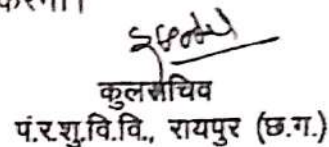 करेगा।
कुलसचिव
पं.र.शु.वि.वि., रायपुर (छ.ग.)